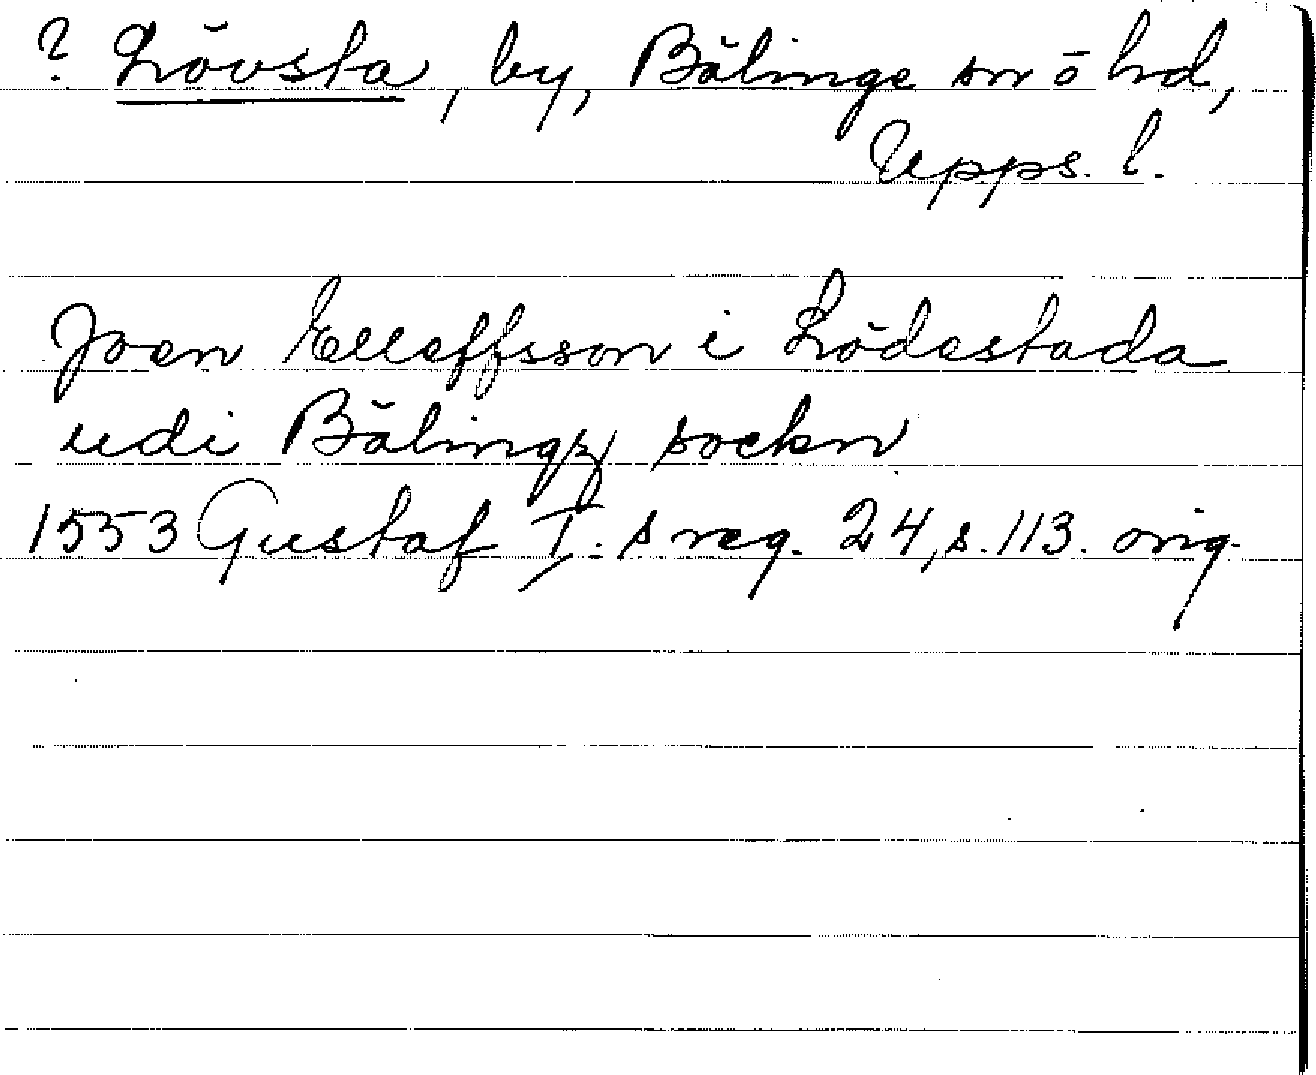 ? Lövsta, by, Bälinge sn o hd,
Upps. l.
Joen Elleffsson i Lödestada
udi Bälingz sockn
1553 Gustaf I:s reg. 24, s. 113. orig.